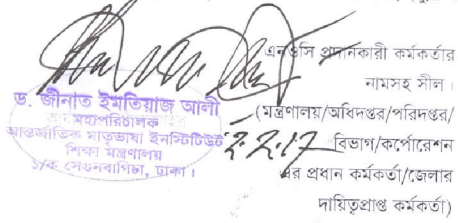 এনওসি প্রদানকারী কর্মকর্তার
নামসহ সীল।
(মন্ত্রণালয়/অধিদপ্তর/পরিদপ্তর/
বিভাগ/কর্পোরেশন
এর প্রধান কর্মকর্তা/জেলার
দায়িত্বপ্রাপ্ত কর্মকর্তা)
ড. জীনাত ইমতিয়াজ আলী
মহাপরিচালক
আন্তর্জাতিক মাতৃভাষা ইনস্টিটিউট
শিক্ষা মন্ত্রণালয়
১/ক সেগুনবাগিচা, ঢাকা।
2.2.17